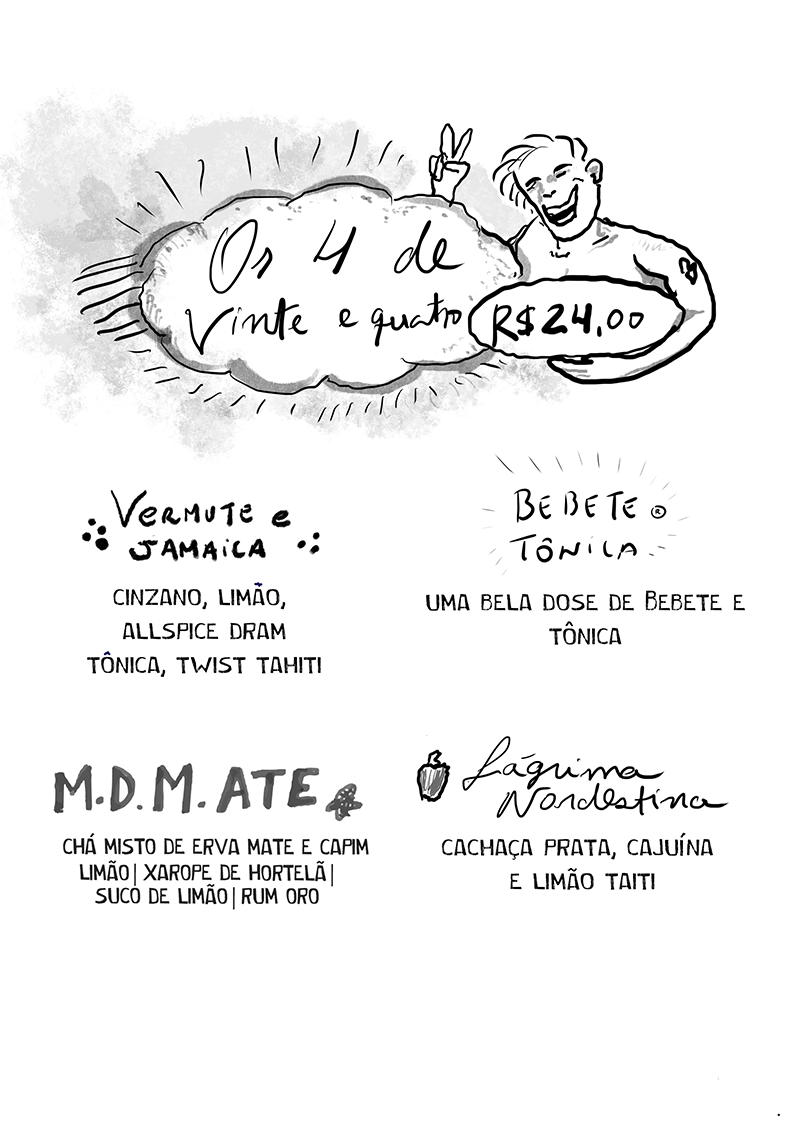 Os 4 de
Vinte e quatro
R$24,00
VERMUTE e
JAMAICA
CINZANO, LIMÃO,
ALLSPICE DRAM
TÔNICA, TWIST TAHITI
BEBETE ®
TÔNICA
UMA BELA DOSE DE BEBETE E
TÔNICA
M.D.M.ATE
CHÁ MISTO DE ERVA MATE E CAPIM
LIMÃO| XAROPE DE HORTELÃ|
SUCO DE LIMÃO|RUM ORO
Lágrima
Nordestina
CACHAÇA PRATA, CAJUÍNA
E LIMÃO TAITI